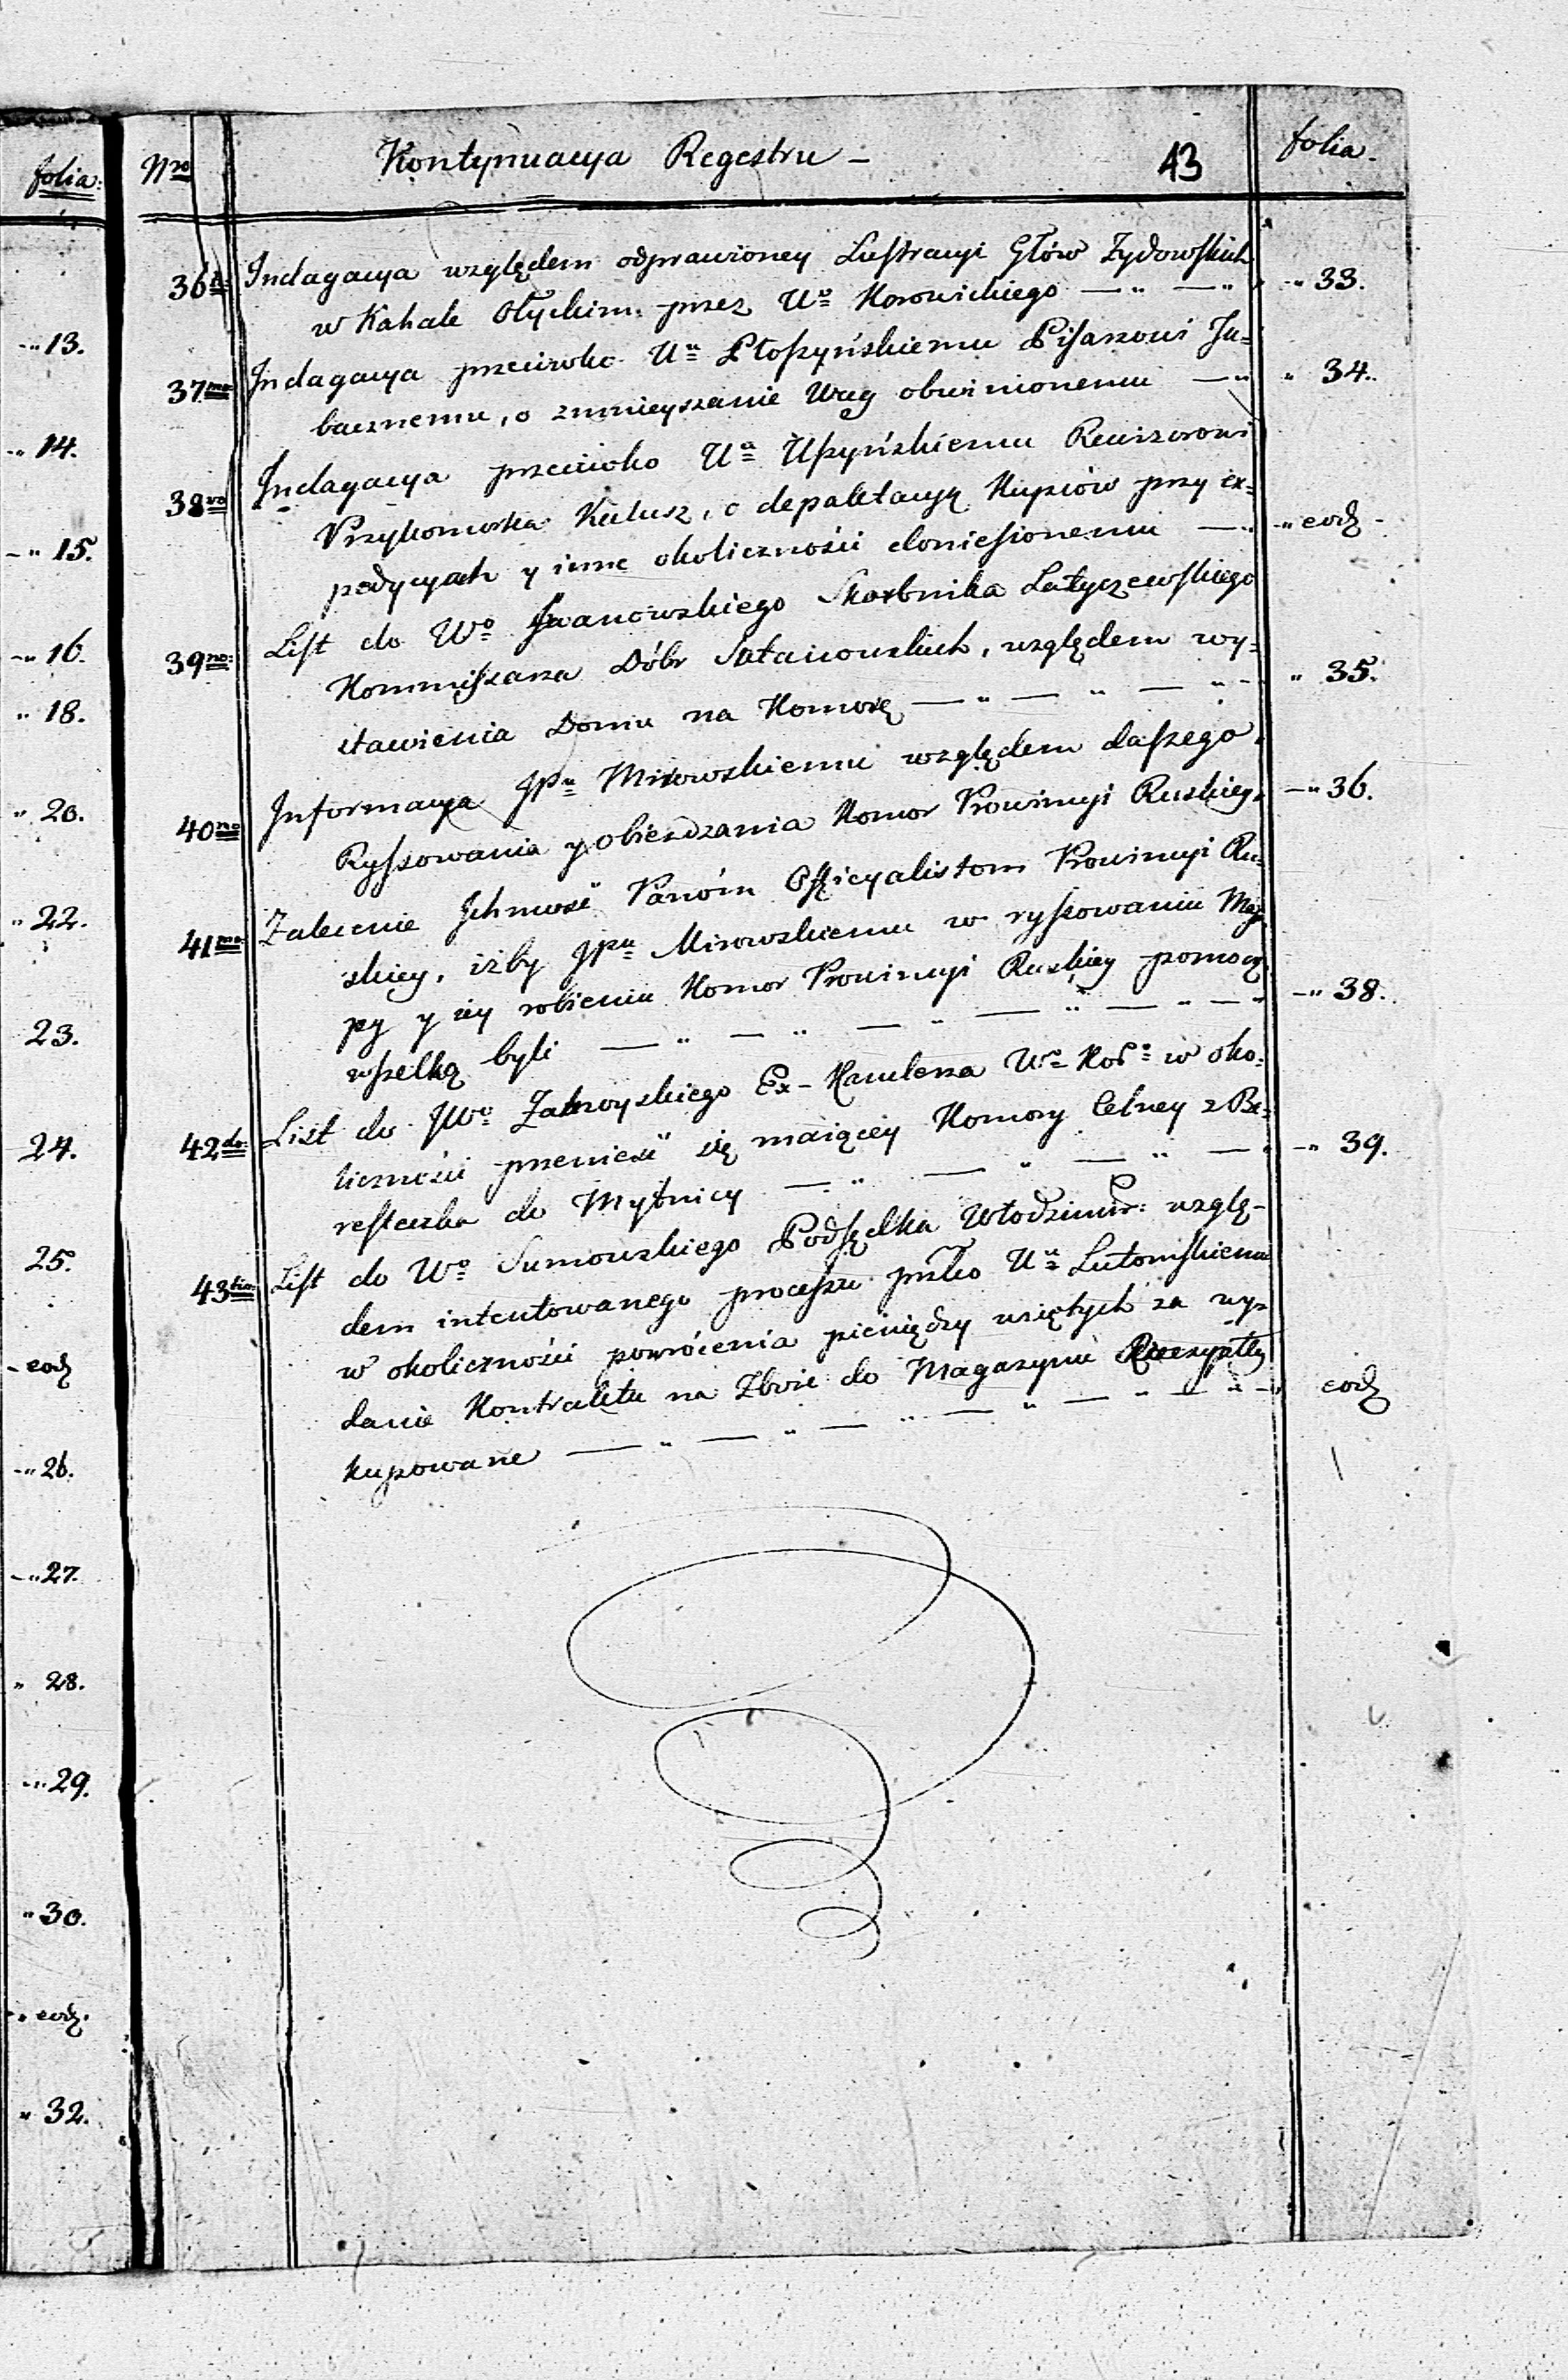 folia:
13.
14.
15.
16.
18.
20.
22.
23.
24.
25.
eod
26.
27.
28.
29.
30.
eod.
32.
Nro Kontynuacya Regestru — 43 folia.
36to Indagacya względem odprawioney Lustracyi Głów Zydowskich
w Kahale Ołyckim przez Uo Horowickiego — „ — „ 33.
37mo Indagacya przeciwko Uu Ptoszyńskiemu Pisarzowi Ju=
bacznemu, o zmnieyszanie Wag obwinionemu — „ 34.
38vo Indagacya przeciwko Uu Uszyńskiemu Rewizorowi
Przykomorka Kalusz, o depaktacyą Kupców przy ex=
pedycyach y inne okoliczności doniesionemu — „ eod
39no: List do Wo Iwanowskiego Skarbnika Latyczewskiego
Kommissarza Dóbr Satanowskich, względem wy=
stawienia Domu na Komorę — „ — „ — „ 35.
40no Informacya JPu Mirowskiemu względem dalszego
Ryssowania y obiezdzania Komor Prowincyi Ruskiey. — „ 36.
41mo Zalecenie Ichmość Panóm Officyalistom Prowincyi Ru=
skiey, iżby JPu Mirowskiemu w ryssowaniu Map=
py y iey robieniu Komor Prowincyi Ruskiey pomocą
wszelką byli — „ — „ — „ — „ — „ — „ 38.
42do: List do JWo Zamoyskiego Ex-Kanclerza Wo Koro w oko=
liczności przenieść się maiącey Komory Celney z Be=
resteczka do Mytnicy — „ — „ — „ — „ 39.
43tio: List do Wo Sumowskiego Podsędka Włodzimir: wzglę=
dem intentowanego processu przko Uu Lutomskiemu
w okoliczności powrócenia pieniędzy wziętych za wy=
danie Kontraktu na Zboże do Magazynu Rzeczypltey
kupowane — „ — „ — „ — „ — „ — „ eod